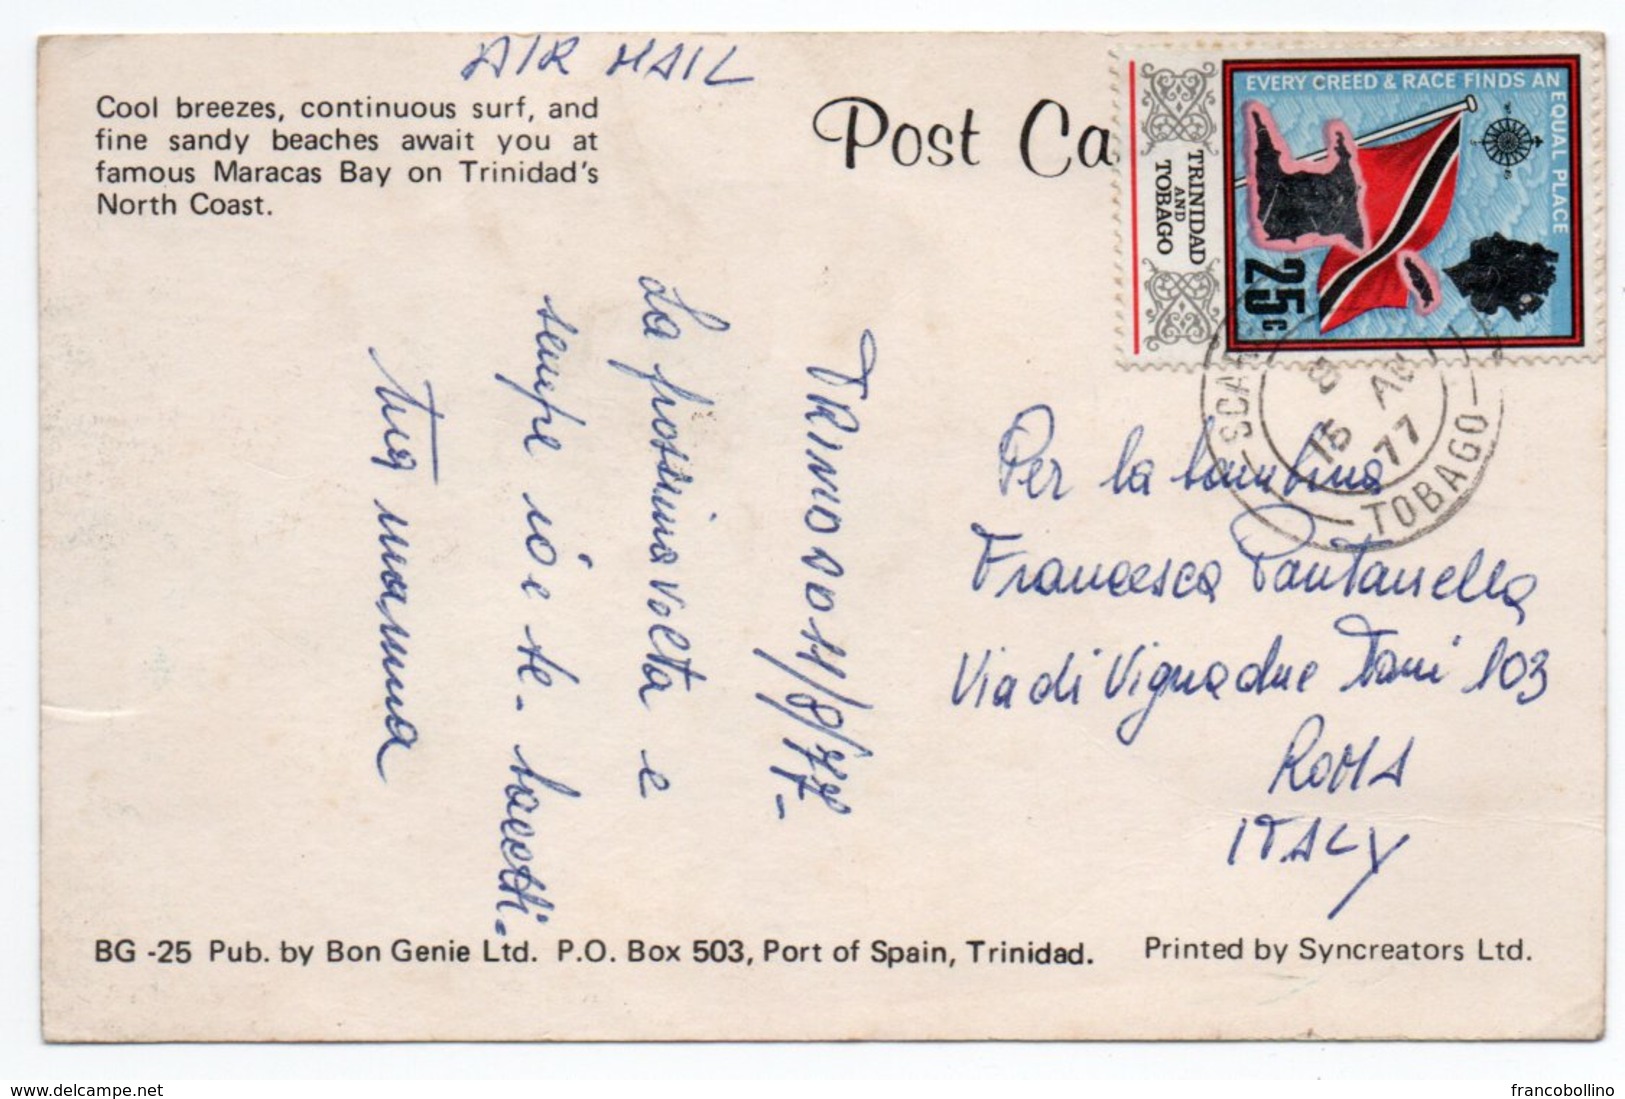 AIR MAIL
Cool breezes, continuous surf, and
fine sandy beaches await you at
famous Maracas Bay on Trinidad's
North Coast.
Post Ca
TRINIDAD
AND
TOBAGO
EVERY CREED & RACE FINDS AN
EQUAL PLACE
25c
TOBAGO
15 AU
77
11/8/77-
La prossima volta e
sempre io e te- baciotti-
tua mamma
Per la bambina
Francesca Pantanella
Via di Vigna due Torri 103
ROMA
ITALY
BG -25 Pub. by Bon Genie Ltd. P.O. Box 503, Port of Spain, Trinidad.
Printed by Syncreators Ltd.
www.delcampe.net
francobollino